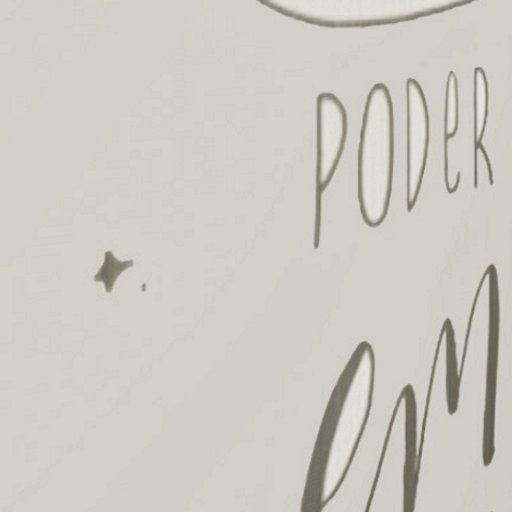 PODER
em